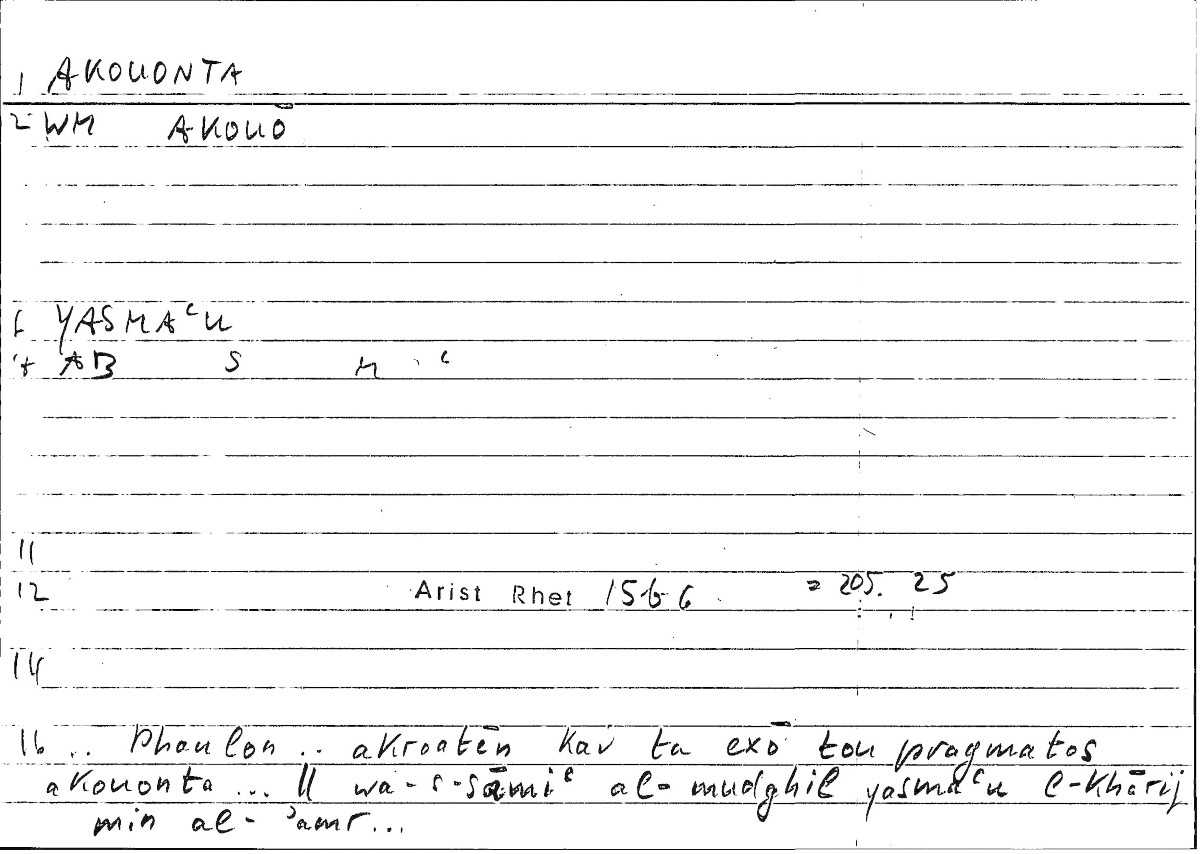 1 AKOUONTA
2 WM AKOUŌ
6 YASMAʿU
AB S M ʿ
11
12 Arist Rhet 15b6 = 205. 25
14
16 .. Phaulon .. akroatēn kai ta exō tou pragmatos
akouonta ... || wa-s-sāmiʿ al-mudghil yasmaʿu l-khārij
min al-ʾamr...